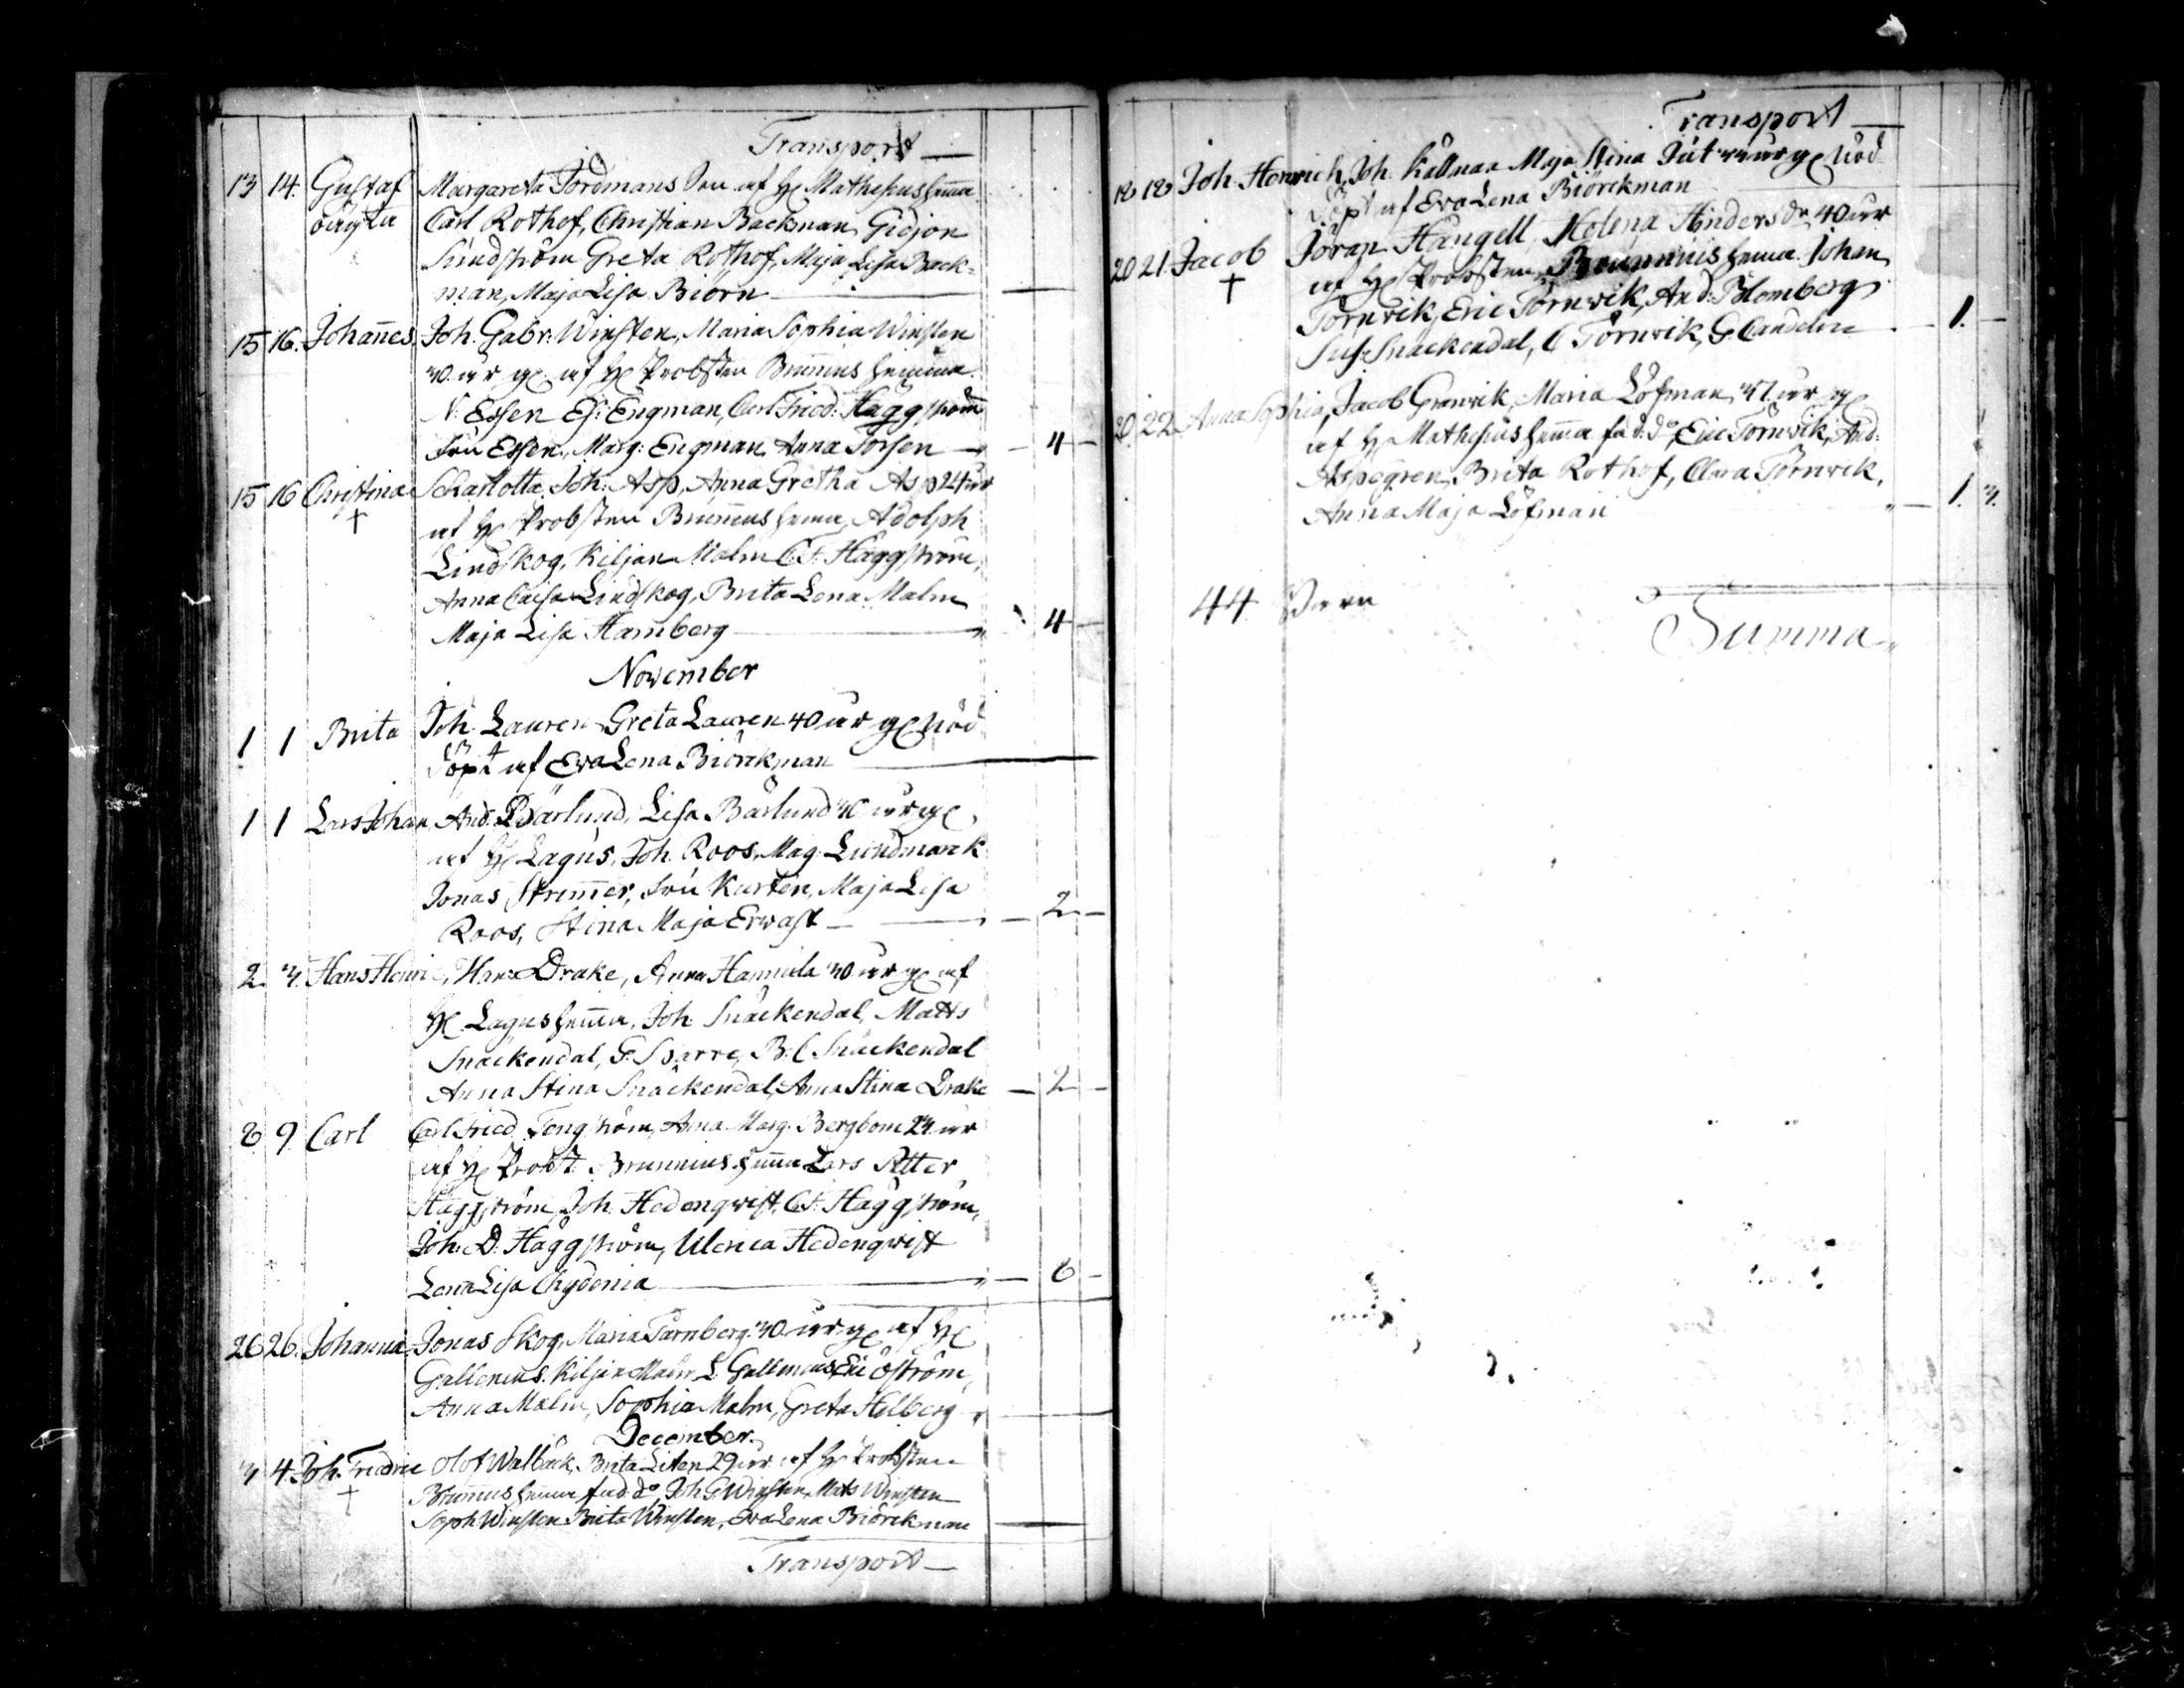 Transport
13 14. Gustaf Margareta Tordmans Son af H Mathesius hemma
oäckta Carl Rothof, Christian Backman, Gidjon
Sundström Greta Rothof, Maja Lisa Back-
man, Maja Lisa Biörn
15 16. Johannes Joh. Gabr: Winsten, Maria Sophia Winsten
30 år af H Probsten Brunnius hemma
N: Essen Engman, Carl Fried: Häggström
Fru Essen, Marg: Engman, Anna Forsen 4
15 16 Christina Scharlotta, Joh: Asp, Anna Gretha Asp 24 år
† af H Probsten Brunnius hemma, Adolph
Lindskog, Kiljan Malm C.F. Häggström,
Anna Caisa Lindskog, Brita Lena Malm
Maja Lisa Hamberg 4
November
1 1 Brita Joh. Lauren Greta Lauren 40 år Nöd
Döpt af Eva Lena Biörckman
1 1 Lars Johan And: Bärlund, Lisa Bärlund år
af H Lagus, Joh. Roos, Mag. Lundmarck
Jonas Fru Kurten, Maja Lisa
Roos, Stina Maja Erwast 2
2 3. Hans Henric, Hans Drake, Anna Hannula 30 år af
H Lagus hemma, Joh. Snäckendal, Matts
Snäckendal, G. Sparre, B. C Snäckendal
Anna Stina Snäckendal, Anna Stina Drake 2
8 9 Carl Carl Fried Tengström, Anna Marg. Bergbom 23 år
af H Probst. Brunnius hemma Lars Petter
Häggström, Joh. Hedenqwist, C.F. Häggström,
Joh: D. Häggström, Ulerica Hedenqwist
Lena Lisa Chydenia 6
26 26. Johanna Jonas Skog, Maria Tarnberg 30 år af H
Gallenius. Kiljan Malm L: Gallenius Eric Öström,
Anna Malm, Sophia Malm, Greta Helberg
December.
3 4. Joh. Fredric Olof Walbäck, Brita Liten 29 år af H Probsten
† Brunnius hemma fad: do, Joh G. Winsten, Mats Winsten
Soph Winsten Brita Winsten, Eva Lena Biörckman
Transport
Transport
18 18 Joh. Henrich, Joh. Källman Maja Stina år Nöd
Döpt af Eva Lena Biörckman
20 21. Jacob Jöran Hängell, Helena Hindersdr 40 år
† af H Probsten Brunnius hemma. Johan
Törnvik, Eric Törnwik, And: Blomberg
Sus: Snäckendal, C Törnvik, G. Candelin 1.
20. 22 Anna Sophia, Jacob Granvik, Maria Löfman, 37 år
af H Mathesius hemma fad: do, Eric Törnwik, And:
Aspegren, Brita Rothof, Clara Törnvik,
Anna Maja Löfman 1. 3.
44 Barn
Summa